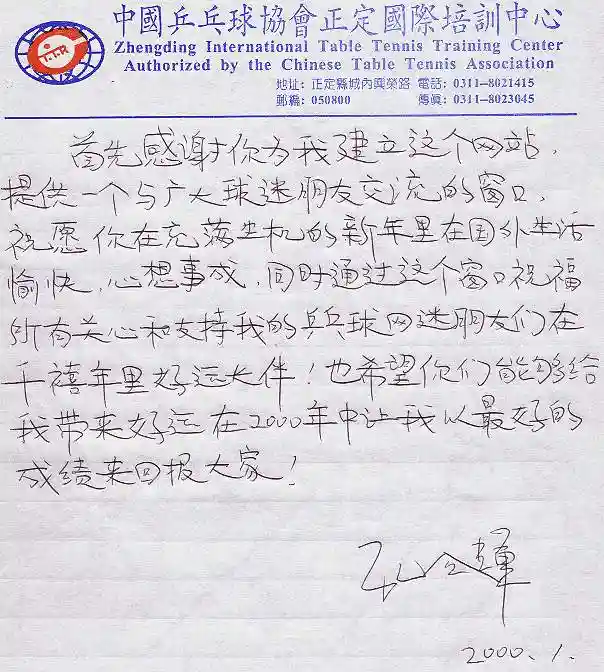 中國乒乓球協會正定國際培訓中心
Zhengding International Table Tennis Training Center
Authorized by the Chinese Table Tennis Association
地址: 正定縣城內興榮路 電話: 0311—8021415
郵編: 050800 傳眞: 0311—8023045
首先感谢你为我建立这个网站,
提供一个与广大球迷朋友交流的窗口,
祝愿你在充落生机的新年里在国外生活
愉快,心想事成,同时通过这个窗口祝福
所有关心和支持我的乒乓球网迷朋友们在
千禧年里好运长伴!也希望你们能够给
我带来好运在2000年中让我以最好的
成绩来回报大家!
2000.1.